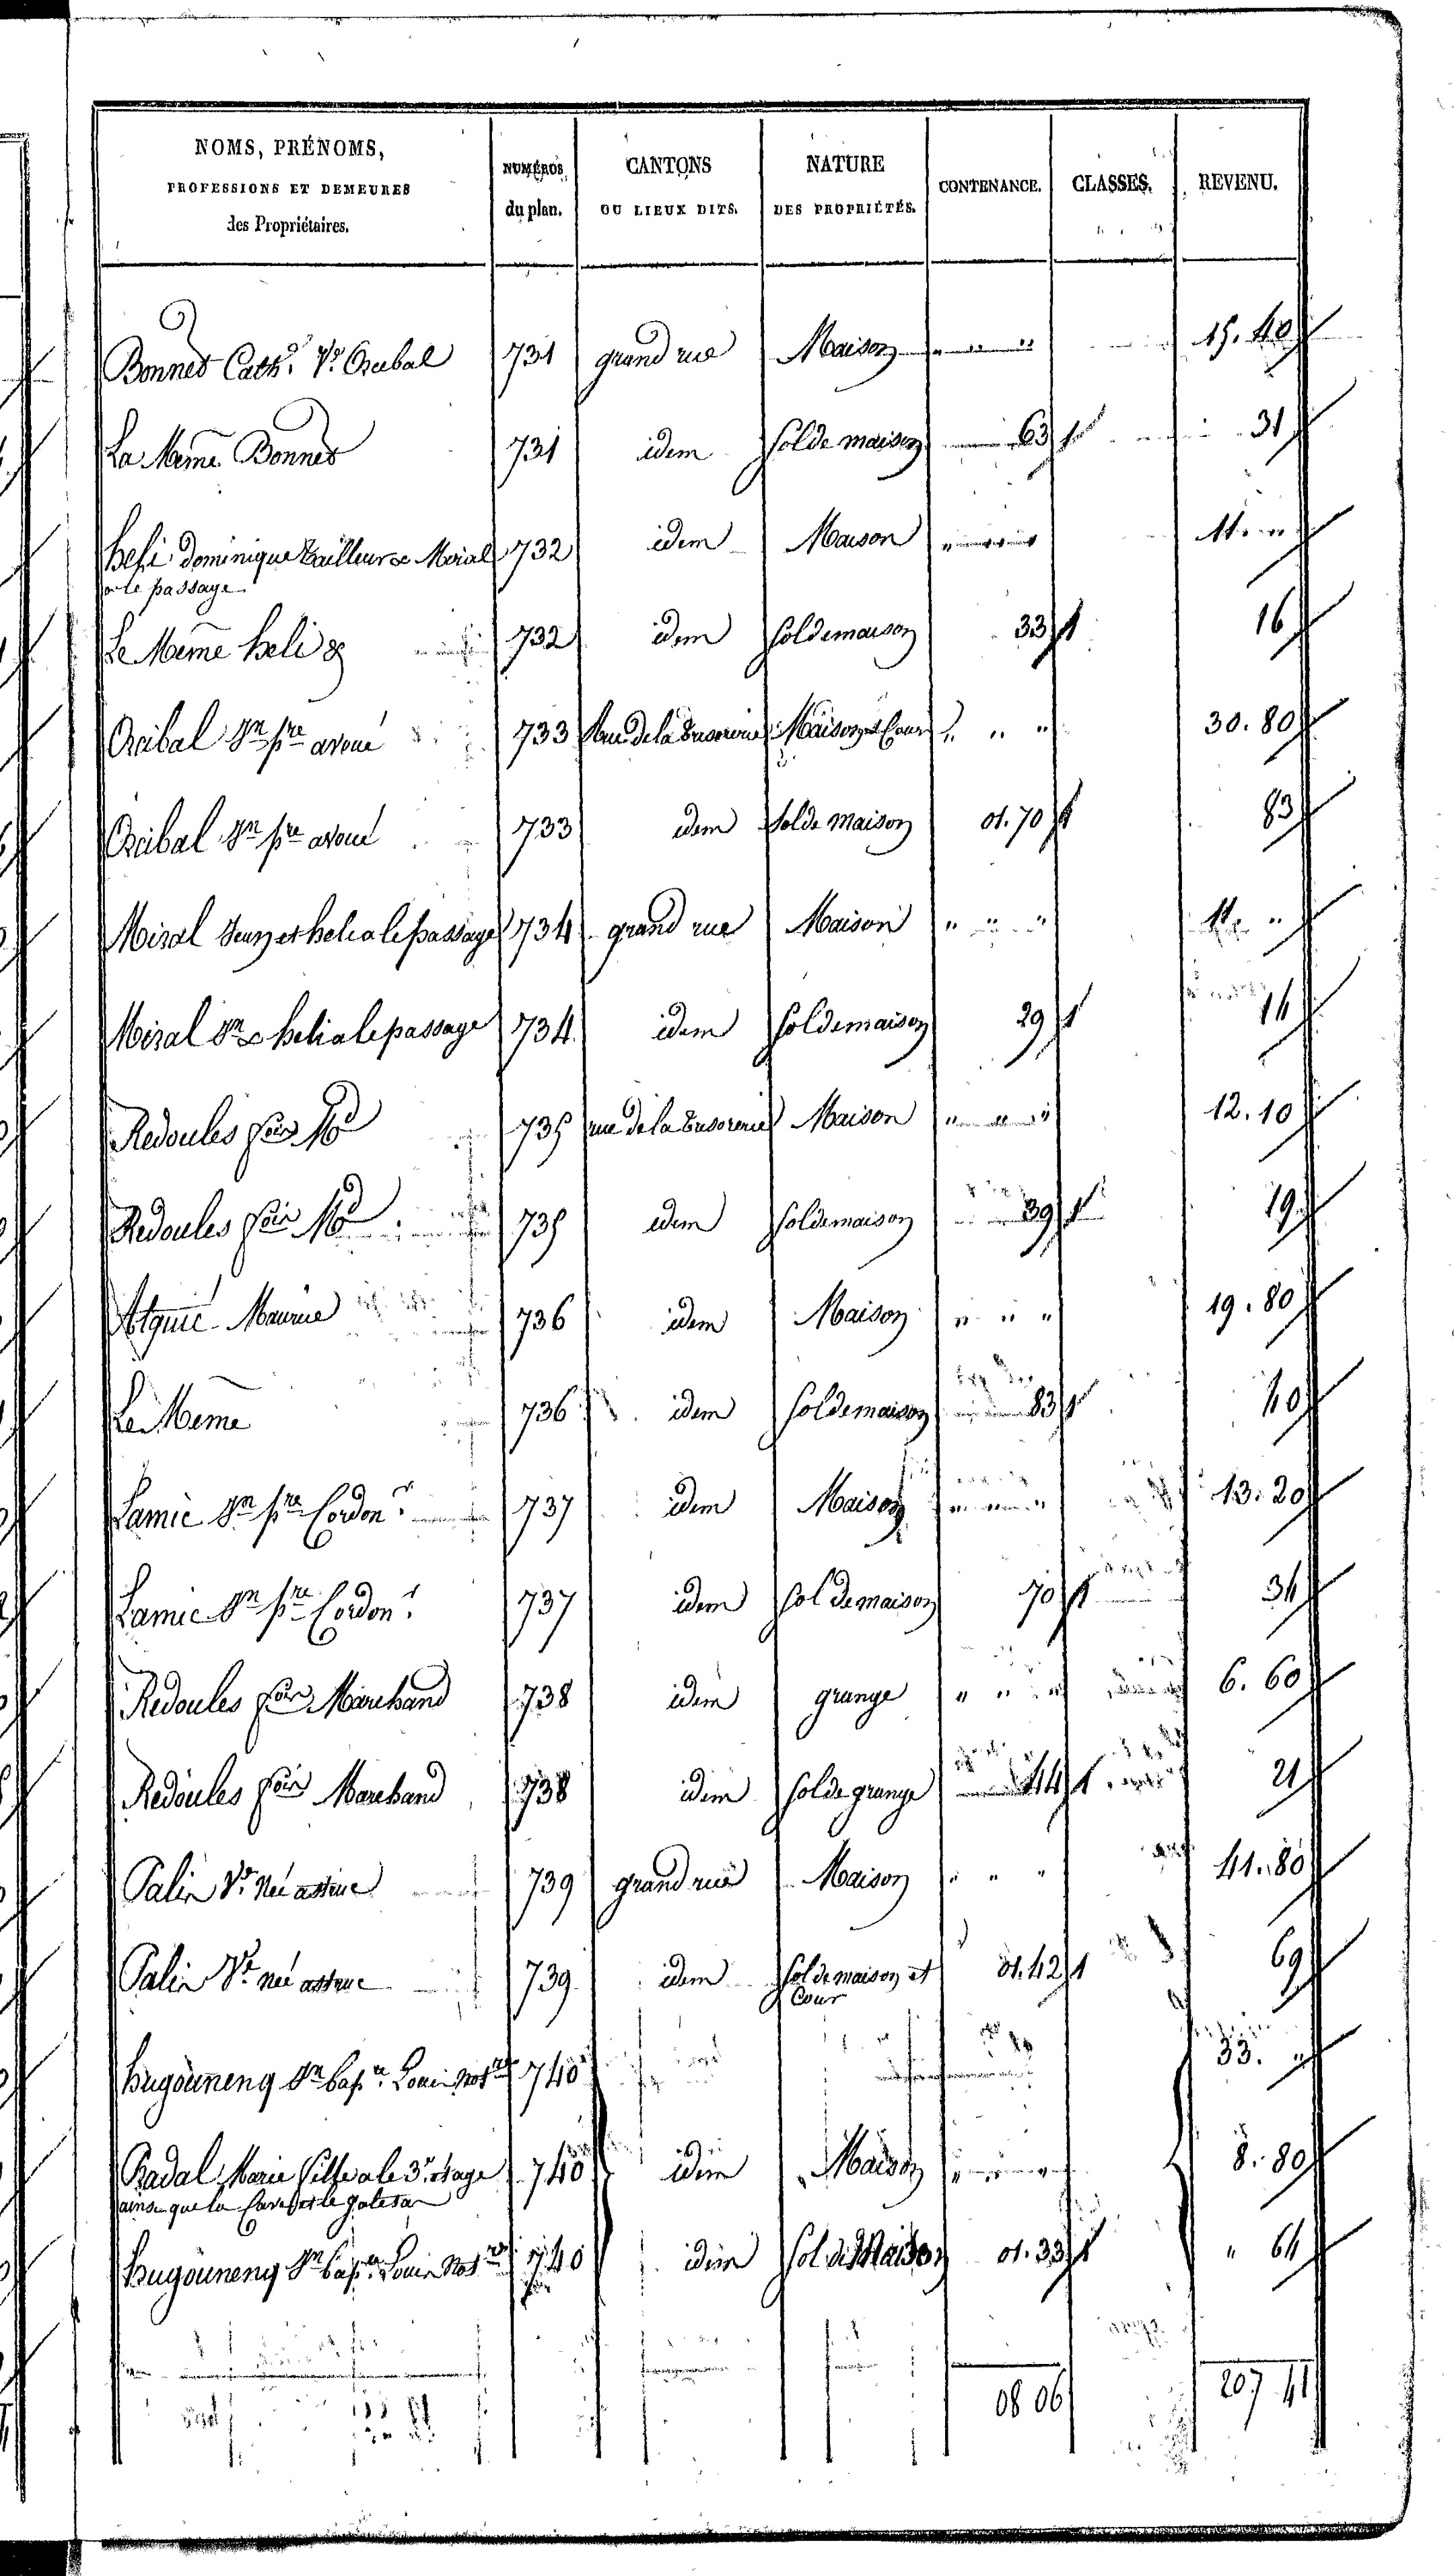 NOMS, PRÉNOMS, PROFESSIONS ET DEMEURES des Propriétaires. NUMÉROS du plan. CANTONS OU LIEUX DITS. NATURE DES PROPRIÉTÉS. CONTENANCE. CLASSES. REVENU.
Bonnet Cath.e V.e Crabal 731 grand rue Maison " " " 15. 40
La Meme Bonnet 731 idem Sol de maison 63 1 31
heli Dominique tailleur & Miral 732 idem Maison " " " 11. "
a le passage
Le Meme heli & 732 idem Sol de maison 33 1 16
Crabal Jn pre avoué 733 Rue de la Maison et Cour " " " 30. 80
Crabal Jn pre avoué 733 idem Sol de maison 01. 70 1 83
Miral Jean et heli a le passage 734 grand rue Maison " " " 11. "
Miral Jn & heli a le passage 734 idem Sol de maison 29 1 14
Redoules fois Md 735 rue de la Maison " " " 12. 10
Redoules fois Md 735 idem Sol de maison 39 1 19
Alquié Maurice 736 idem Maison " " " 19. 80
Le Meme 736 idem Sol de maison 83 1 40
Lamic Jn pre Cordon.r 737 idem Maison " " " 13. 20
Lamic Jn pre Cordon.r 737 idem Sol de maison 70 1 34
Redoules fois Marchand 738 idem grange " " " 6. 60
Redoules fois Marchand 738 idem Sol de grange 44 1 21
Palin V.e née 739 grand rue Maison " " " 41. 80
Palin V.e née 739 idem Sol de maison et 01. 42 1 69
Cour
hugouneng Jn bap.te Louis Not.re 740 33. "
Radal Marie fille a le 3.e etage 740 idem Maison " " " 8. 80
ainsi que la Cave et le galetas
hugouneng Jn bap.te Louis Not.re 740 idem Sol de Maison 01. 33 1 " 64
08 06 207 41